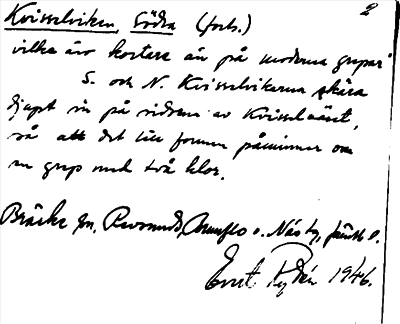 Kvisselviken, Södra (forts.) 2
vilka äro kortare än på moderna grepar.
S. och N. Kvisselvikarna skära
djupt in på sidorna av Kvisselnäset,
så att det till formen påminner om
en grep med två klor.
Bräcke sn, Revsunds, Brunflo o. Näs tg, Jämtl. l.
Ernst 1946.